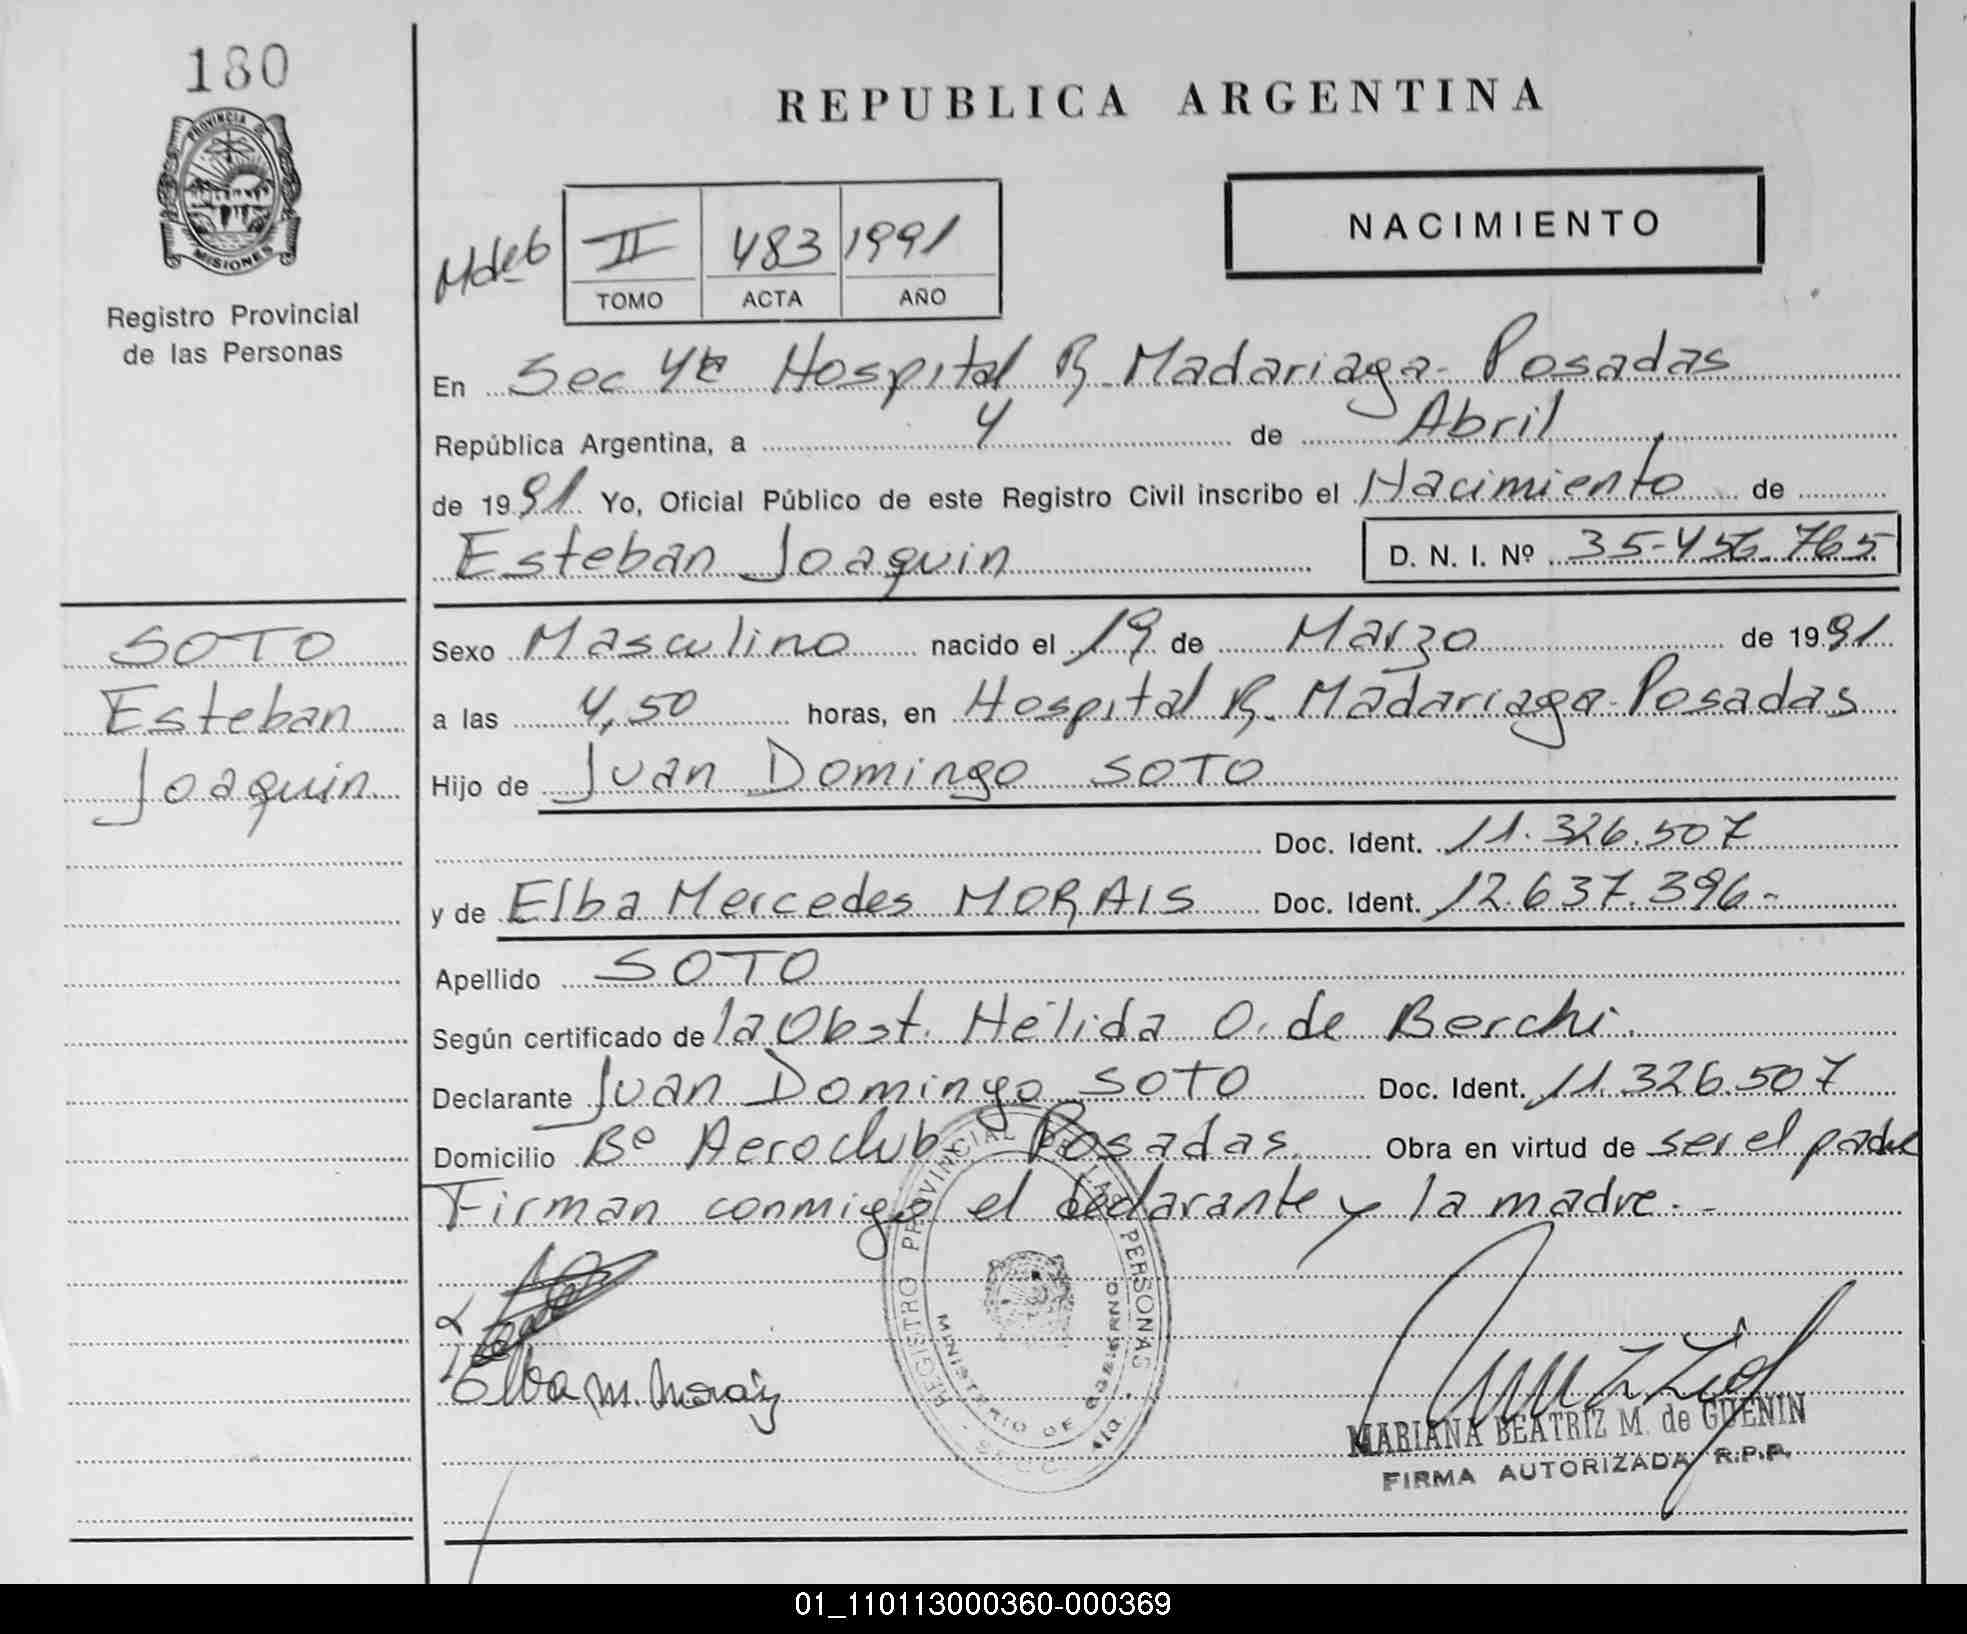 180
PROVINCIA DE
MISIONES
Registro Provincial
de las Personas
REPUBLICA ARGENTINA
NACIMIENTO
II 483 1991
TOMO ACTA AÑO
En Sec 4ta Hospital R. Madariaga - Posadas
República Argentina, a 4 de Abril
de 1991 Yo, Oficial Público de este Registro Civil inscribo el Nacimiento de
Esteban Joaquin D. N. I. Nº 35-456.765
SOTO
Esteban
Joaquin
Sexo Masculino nacido el 19 de Marzo de 1991
a las 4,50 horas, en Hospital R. Madariaga - Posadas
Hijo de Juan Domingo SOTO
Doc. Ident. 11.326.507
y de Elba Mercedes MORAIS Doc. Ident. 12.637.396-
Apellido SOTO
Según certificado de la Obst. Hélida O. de Berchi.
Declarante Juan Domingo SOTO Doc. Ident. 11.326.507
Domicilio Bº Aeroclub Posadas Obra en virtud de ser el padre
Firman conmigo el declarante y la madre.-
REGISTRO PROVINCIAL DE LAS PERSONAS
MINISTERIO DE GOBIERNO
Elba M. Morais
MARIANA BEATRIZ M. de GUENIN
FIRMA AUTORIZADA R.P.P.
01_110113000360-000369